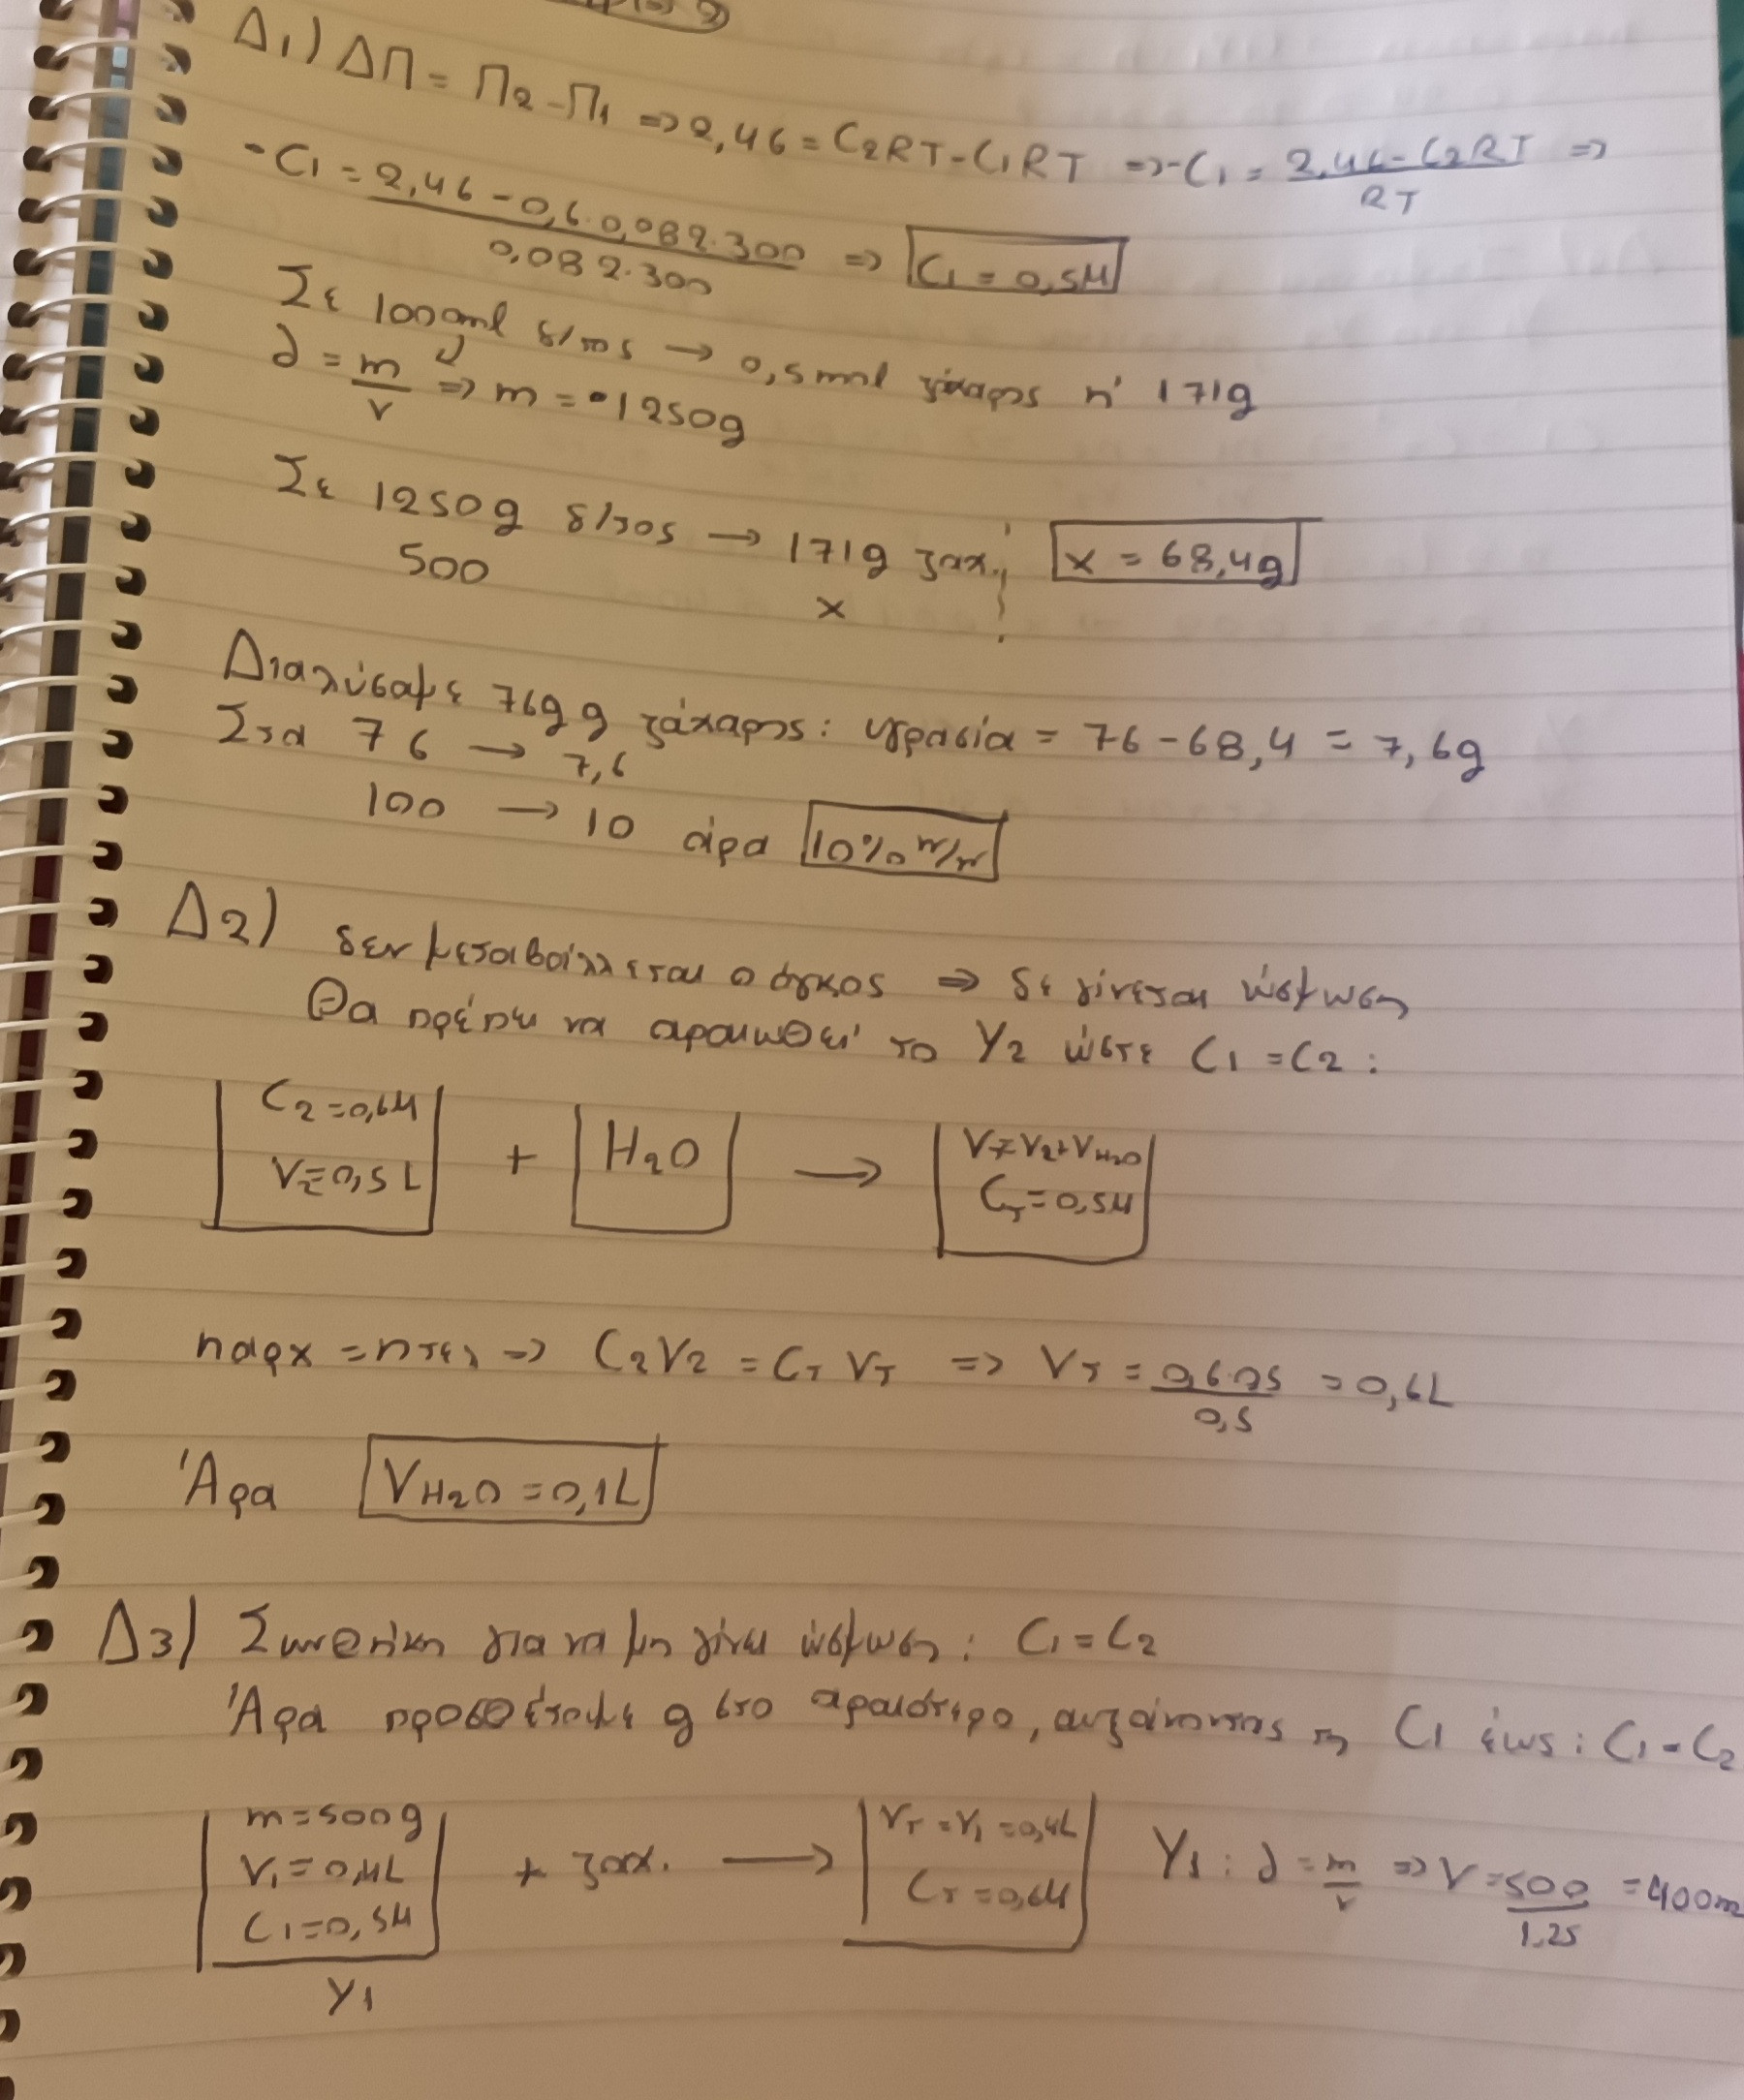 Δ1) ΔΠ = Π2 - Π1 => 2,46 = C2RT - C1RT => -C1 = (2,46 - C2RT)/RT =>
-C1 = (2,46 - 0,6·0,082·300)/(0,082·300) => C1 = 0,5M
Σε 1000ml δ/τος → 0,5mol ζάχαρης ή 171g
∂ = m/v => m = 1250g
Σε 1250g δ/τος → 171g ζαχ. x = 68,4g
500 x
Διαλύσαμε 76g g ζάχαρης: υγρασία = 76 - 68,4 = 7,6g
Στα 76 → 7,6
100 → 10 άρα 10% w/w
Δ2) δεν μεταβάλλεται ο όγκος => δε γίνεται ώσμωση
Θα πρέπει να αραιωθεί το Υ2 ώστε C1 = C2:
C2 = 0,6M + H2O → Vτ=V2+VH2O
V2=0,5L Cτ=0,5M
nαρχ = nτελ => C2V2 = Cτ Vτ => Vτ = (0,6·0,5)/0,5 = 0,6L
Άρα VH2O = 0,1L
Δ3) Συνθήκη για να μη γίνει ώσμωση: C1 = C2
Άρα προσθέτουμε g στο αραιότερο, αυξάνοντας τη C1 έως: C1 = C2
m=500g Vτ=V1=0,4L
V1=0,4L + ζαχ. → Cτ=0,6M Υ1: ∂=m/v => V=500/1,25 =400m
C1=0,5M
Υ1